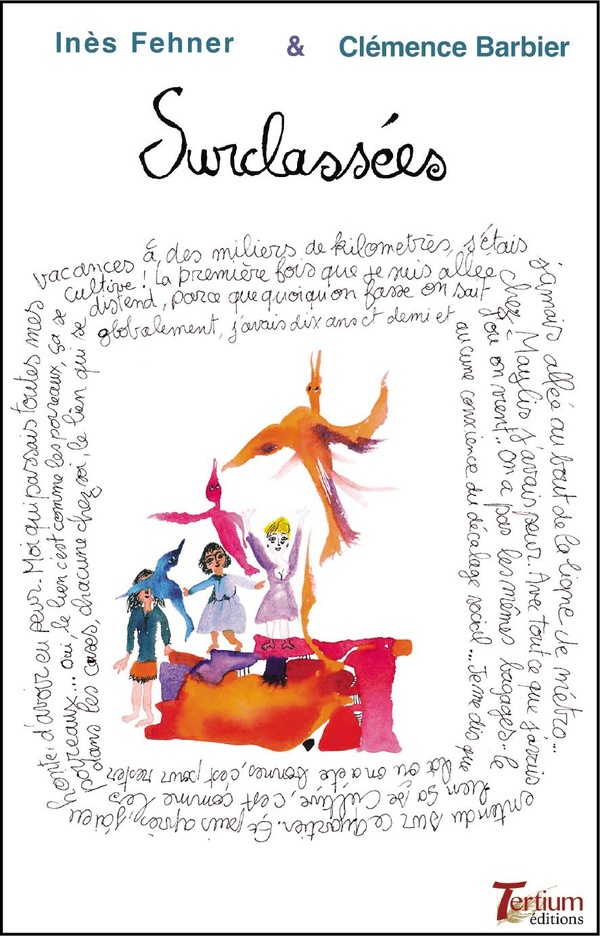 Inès Fehner & Clémence Barbier
Surclassées
globalement, j'avais dix ans et demi et
aucune conscience du décalage social... Je me dis que
là où on a été bonnes, c'est pour rester
dans les cases, chacune chez soi, le lien qui se
distend, parce que quoiqu'on fasse on sait
d'où on vient.. on a pas les mêmes bagages.. le
lien ça se cultive, c'est comme les
poireaux... oui, le lien c'est comme les poireaux, ça se
cultive ! La première fois que je suis allée
chez Maylis j'avais peur. Avec tout ce que j'avais
entendu sur ce quartier. Et puis après, j'ai eu
honte d'avoir eu peur. Moi qui passais toutes mes
vacances à des miliers de kilometrès, j'étais
jamais allée au bout de la ligne de métro...
Tertium
éditions